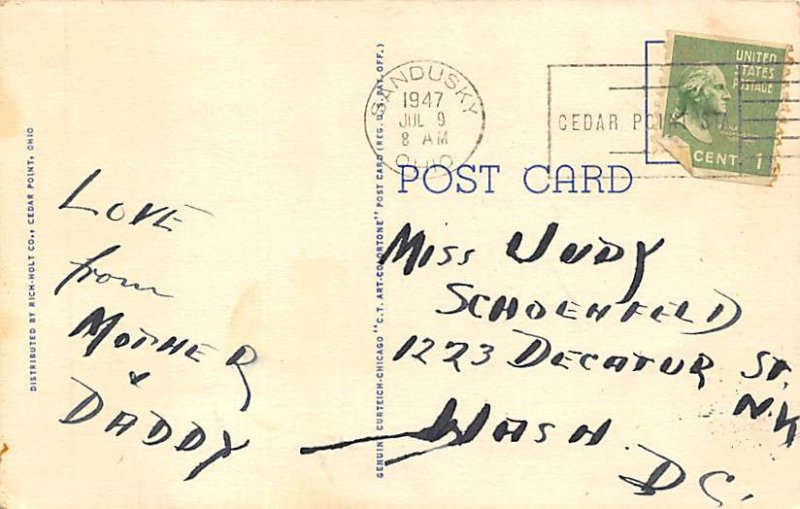 DISTRIBUTED BY RICH-HOLT CO., CEDAR POINT, OHIO
LOVE
from
MOTHER
&
DADDY
GENUINE CURTEICH-CHICAGO "C.T. ART-COLORTONE" POST CARD (REG. U.S. PAT. OFF.)
SANDUSKY
1947
JUL 9
8 AM
OHIO
CEDAR POINT STA.
UNITED
STATES
POSTAGE
CENT 1
POST CARD
MISS JUDY
SCHOENFELD
1223 DECATUR ST.
N.W
WASH.
DC.